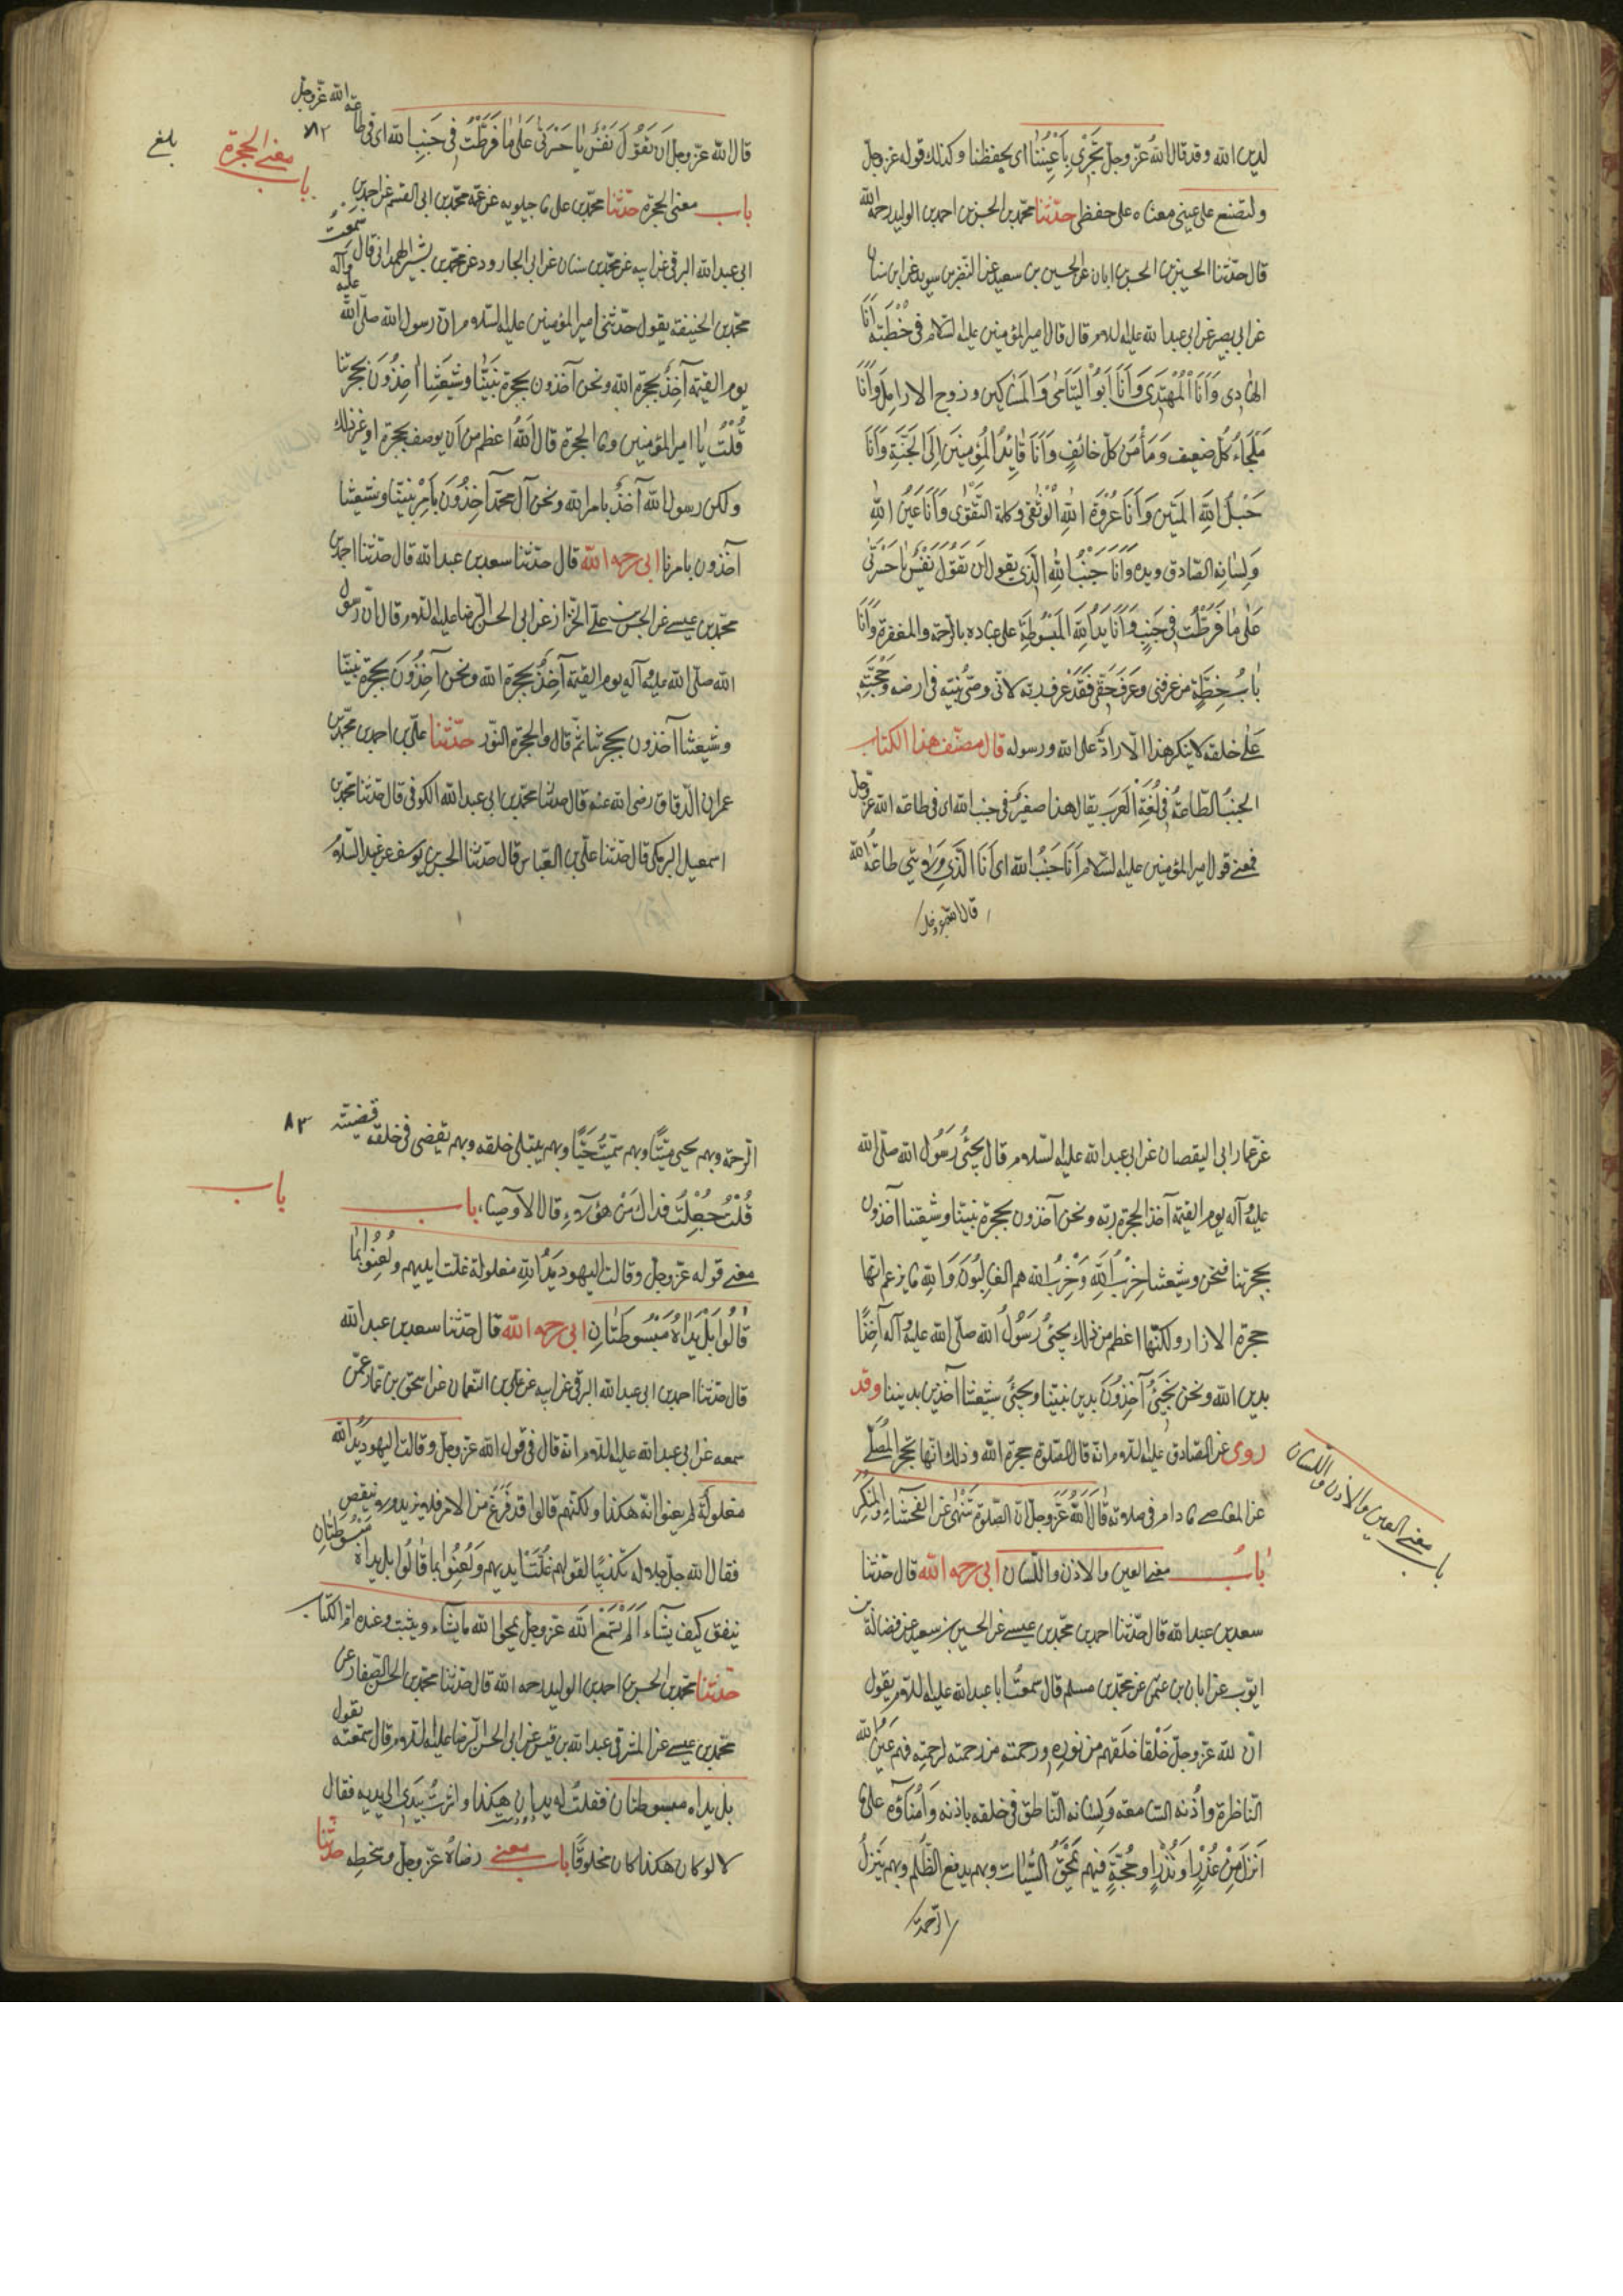 لدين الله وقد قال الله عزّ وجلّ تجري بِأَعْيُنِنا اى بحفظنا وكذلك قوله عز وجل
ولتصنع على عيني معناه على حفظى حدّثنا محمّد بن الحسن بن احمد بن الوليد رحمه الله
قال حدّثنا الحسين بن الحسن بن ابان عن الحسين بن سعيد عن النضر بن سويد عن ابن سنان
عن ابى بصير عن ابى عبد الله عليه السلام قال قال امير المؤمنين عليه السّلام فى خُطْبَتِه أنَا
الهادى وَأَنَا الْمُهْتَدى وَأَنَا أَبُو الْيَتَامى وَالْمَسَاكين وزوج الارامل وَأَنَا
مَلْجَاءُ كُلّ ضعيف وَمَأْمَنُ كلّ خائفٍ وَأَنَا قَائِدُ المُؤمِنِينَ إلَى الجَنَّةِ وَأَنَا
حَبْلُ اللهِ المَتين وَأَنَا عُرْوَةُ اللهِ الْوُثْقى وكلمة التَّقْوى وَأَنَا عَيْنُ اللهِ
وَلِسانه الصّادق ويده وَأَنَا جَنْبُ اللهِ الَّذى يقول أن تَقُولَ نَفْسٌ يا حَسْرَتى
عَلى ما فَرَّطْتُ فى جَنبِ وَأَنَا يَدُ اللهِ المَبْسُوطَةُ على عباده بالرّحمة والمغفرة وَأَنَا
بابُ حِطَّةٍ من عرفنى وعَرَفَ حَقّى فَقَدْ عَرفَ ربّه لانّى وصىّ نبيّه فى ارضه وَحُجَّتِه
عَلى خلقه لا ينكر هذا الّا رادٌّ على الله ورسوله قال مصنّف هذا الكتاب
الجنبُ الطّاعةُ فى لُغَةِ الْعَرَب يقال هذا صغيرٌ فى جنب الله اى فى طاعة الله عزّ وجل
فمعنى قول امير المؤمنين عليه السّلام أَنَا جَنْبُ الله اى أَنَا الَّذى وَلايتى طاعةُ الله
قال الله عزوجل
قال الله عزّ وجلّ أن تَقُولَ نَفْسٌ يا حَسْرَتى عَلى ما فَرَّطْتُ فى جَنبِ الله اى فى طاعة الله عزّ وجل
٨٢
باب معنى الحجزة
بلغ
باب معنى الحجزة حدّثنا محمّد بن على ماجيلويه عن عمّه محمّد بن ابى القسم عن احمد بن
ابى عبد الله البرقى عن ابيه عن محمّد بن سنان عن ابى الجارود عن محمّد بن بشير الهمدانى قال سمعت
محمّد بن الحنيفة يقول حدّثنى امير المؤمنين عليه السّلام ان رسول الله صلّى الله عليه وآله
يوم القيمة آخِذٌ بحجزة الله ونحن آخذون بحجزة نبيّنا وشيعتنا آخِذُونَ بحجزتنا
قُلْتُ يا امير المؤمنين وما الحجزة قال اللهُ اعظم من أن يوصف بحجزة او غير ذلك
ولكن رسول الله آخذٌ بامر الله ونحن آل محمّد آخِذُونَ بأمْرِ نبيّنا وشيعتنا
آخذون بامرنا ابى رحمه الله قال حدّثنا سعد بن عبد الله قال حدّثنا احمد بن
محمّد بن عيسى عن الحسن بن علىّ الخزّاز عن ابى الحسن الرّضا عليه السّلام قال انّ رسول
الله صلّى الله عليه وآله يوم القيمة آخِذٌ بحجزة الله ونحن آخِذُونَ بحجزة نبيّنا
وشيعتنا آخذون بحجزتنا ثمّ قال والحجزة النّور حدّثنا علىّ بن احمد بن محمّد بن
عمران الدّقاق رضى الله عنه قال حدثنا محمّد بن ابى عبد الله الكوفى قال حدّثنا محمّد بن
اسمعيل البرمكى قال حدّثنا علىّ بن العبّاس قال حدّثنا الحسن بن يوسف عن عبد السّلام
عن عمّار ابى اليقصان عن ابى عبد الله عليه السّلام قال يجىُ رَسُولُ الله صلّى الله
عليه وآله يوم القيمة آخذا بحجزة ربّه ونحن آخذون بحجزة نبيّنا وشيعتنا آخذون
بحجزتنا فنحن وشيعتنا حِزْبُ اللهِ وَحِزْبُ الله هم الغالِبُونَ وَاللهِ ما يزعم انّها
حجزة الازار ولكنّها اعظم من ذلك يجىُ رَسُولُ الله صلّى الله عليه وآله آخِذًا
بدين الله ونحن نَجىُ آخِذُونَ بدين نبيّنا وتجىُ شيعتنا آخذين بديننا وقد
روى عن الصّادق عليه السّلام انّه قال الصّلوة حجزة الله وذلك انّها تحجز المُصَلّى
عن المعاصى ما دام فى صلاته قال اللهُ عَزَّ وجلّ انّ الصّلوة تَنْهى عن الفحشاء والمنكر
باب معنى العين والاذن واللّسان
بابُ معنى العين والاذن واللّسان ابى رحمه الله قال حدّثنا
سعد بن عبد الله قال حدّثنا احمد بن محمّد بن عيسى عن الحسين بن سعيد عن فضالة بن
ايّوب عن ابان بن عثمن عن محمّد بن مسلم قال سمعتُ ابا عبد الله عليه السّلام يقول
انّ لله عزّ وجلّ خَلْقا خلقهم من نورهِ ورحمته من رحمته لرحمتِه فهم عَينُ الله
النّاظرة واُذُنه السّامعة وَلِسانه النّاطق فى خلقه باذنه وَأُمَناؤه على ما
اَنزَلَ مِنْ عُذْرٍ اَو نُذْرٍ وحُجَّةٍ فبهم يَمْحَقُ السّيّئات وبهم يدفع الظّلم وبهم يُنزِلُ
الرّحمة
الرّحمة وبهم يحيى مَيّتًا وبهم يميتُ حَيًّا وبهم يبتلى خلقه وبهم يقضى فى خلقه قضيّته
٨٣
قُلْتُ جُعِلْتُ فداكَ مَنْ هؤلاءِ قال الاوصياء، باب
باب
معنى قوله عزّ وجلّ وقالت اليهود يَدُ اللهِ مغلولة غلّت ايديهم ولُعِنُوا بما
قالُوا بَلْ يَداهُ مَبْسُوطَتانِ ابى رحمه الله قال حدّثنا سعد بن عبد الله
قال حدّثنا احمد بن ابى عبد الله البرقى عن ابيه عن علىّ بن النّعمان عن اسحق بن عمّار عمّن
سمعه عن ابى عبد الله عليه السّلام انّه قال فى قول الله عزّ وجلّ وقالت اليهود يدُ الله
مغلولةٌ لم يعنوا انّه هكذا ولكنّهم قالوا قد فَرَغَ من الامر فلا يزيد ولا ينقص
فقال الله جلّ جلاله تكذيبًا لقولهم غُلَّتْ ايديهم وَلُعِنُوا بما قالُوا بل يداهُ مَبْسُوطَتانِ
ينفق كيف يشآء اَلَمْ تَسْمَعِ اللهَ عزّ وجلّ يمحوا الله ما يشآء ويثبت وعنده امّ الكتاب
حدّثنا محمّد بن الحسن بن احمد بن الوليد رحمه الله قال حدّثنا محمّد بن الحسن الصّفار عن
محمّد بن عيسى عن المشرقى عبد الله بن قيس عن ابى الحسن الرّضا عليه السّلام قال سمعته يقول
بل يداه مبسوطتان فقلتُ له يدان هكذا واشرتُ بيَدَى الى يديه فقال
لا لو كان هكذا كان مخلوقًا باب معنى رضاهُ عزّ وجلّ وسخطِه حدّثنا